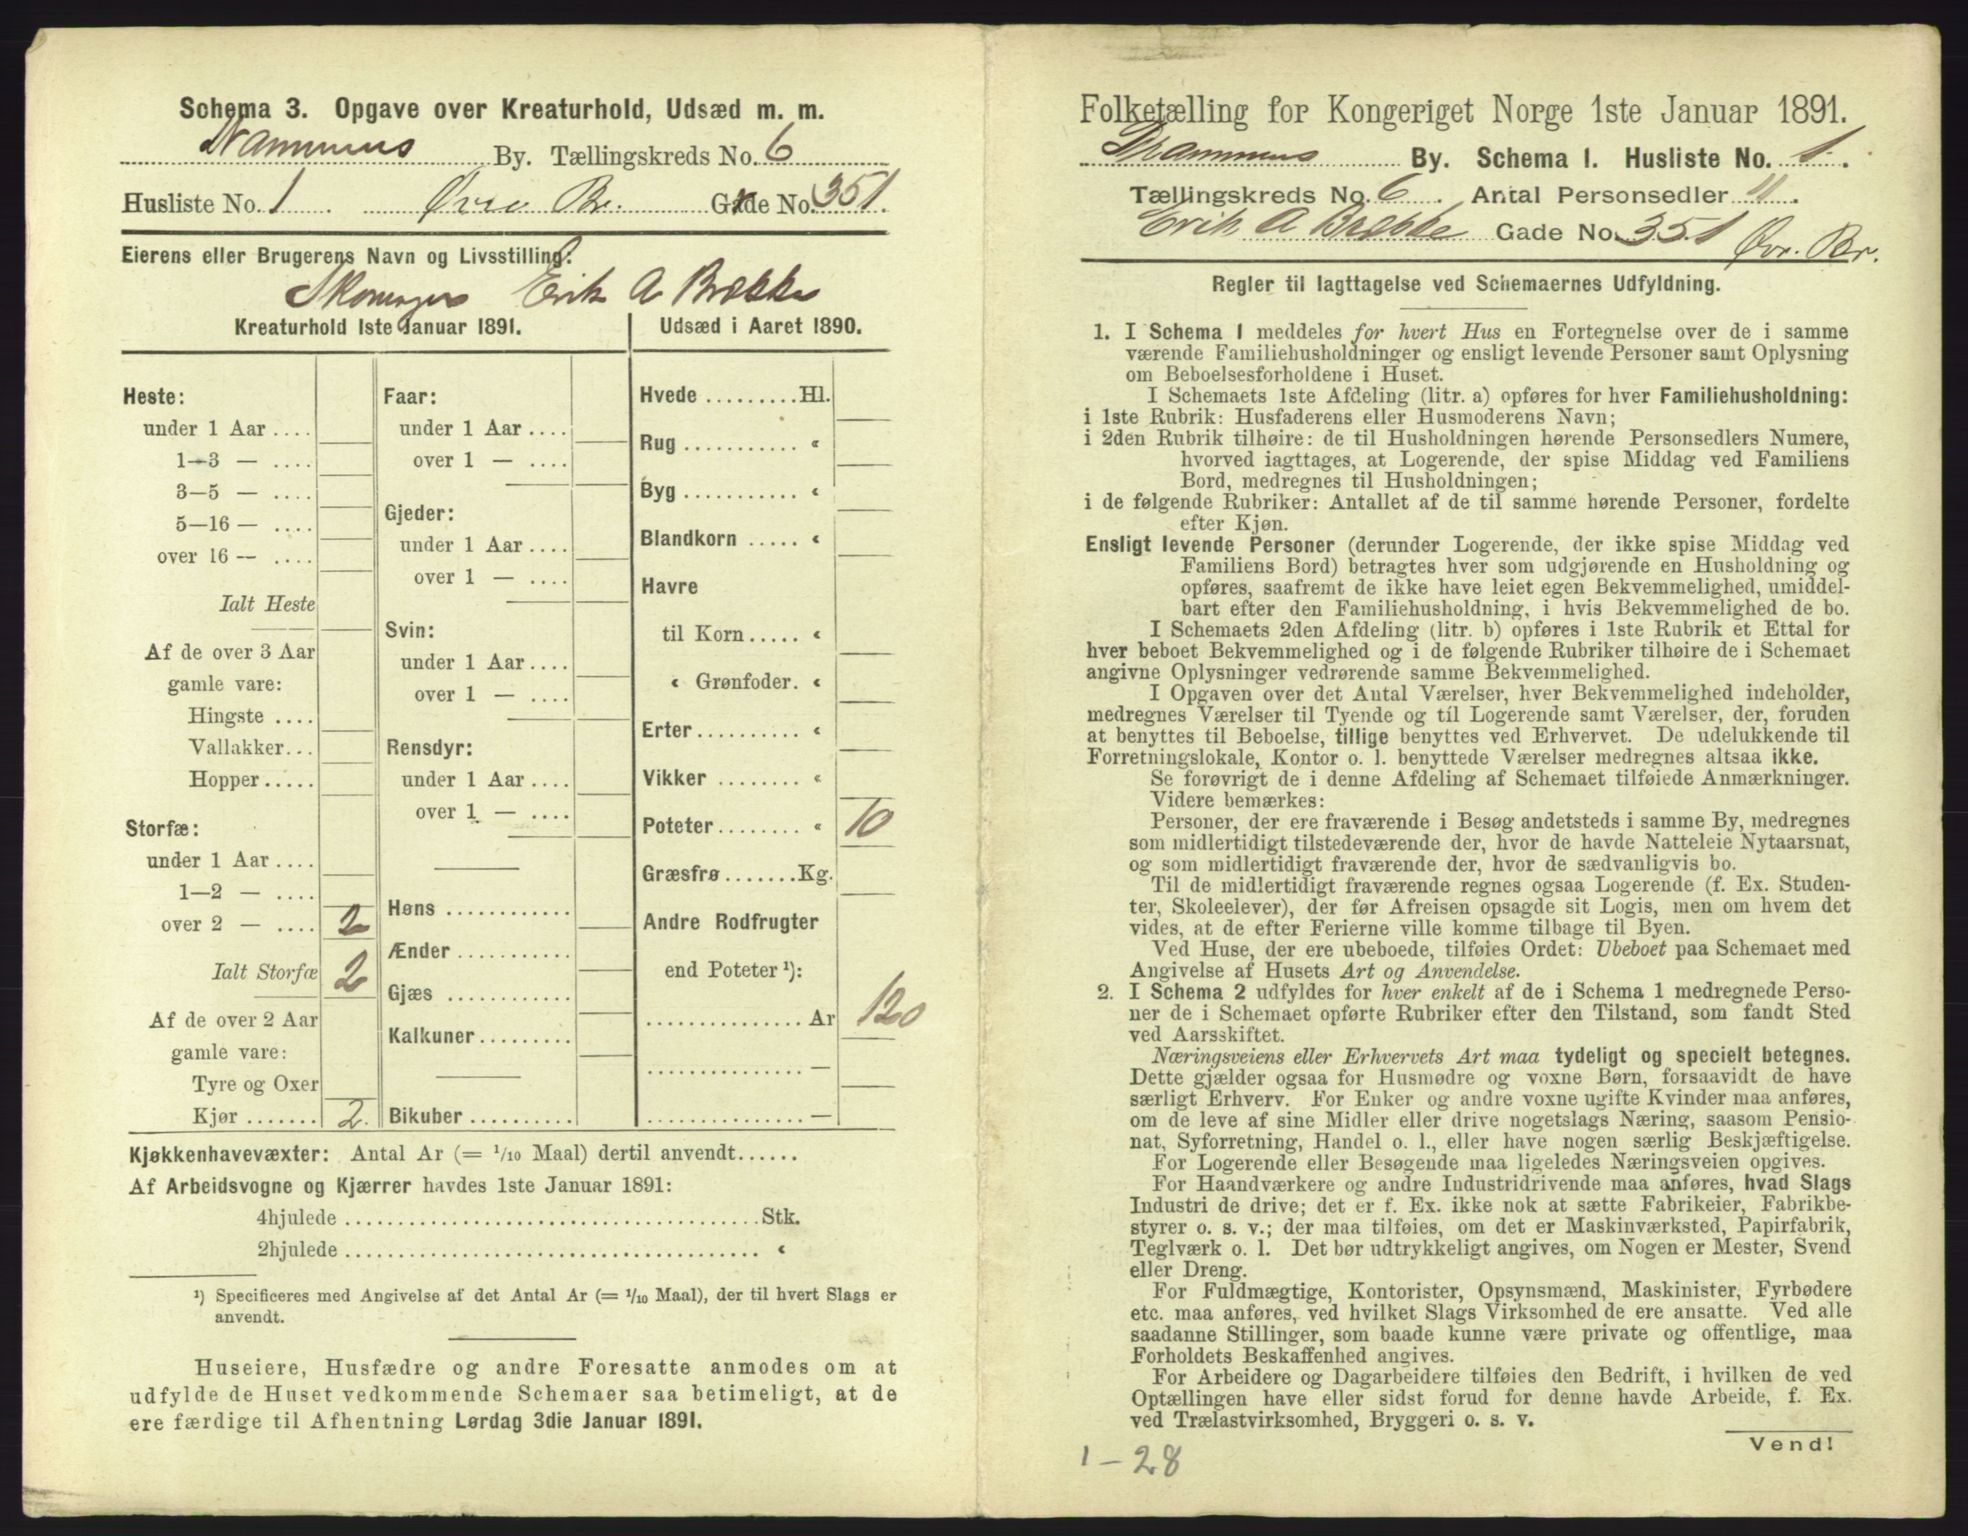 Schema 3. Opgave over Kreaturhold, Udsæd m. m.
Drammens By. Tællingskreds No. 6
Husliste No. 1 Øvre Br. Gade No. 351
Eierens eller Brugerens Navn og Livsstilling:
Erik A Brække
Kreaturhold 1ste Januar 1891.
Udsæd i Aaret 1890.
Heste:
under 1 Aar ....
1—3 — ....
3—5 — ....
5—16 — ....
over 16 — ....
Ialt Heste
Af de over 3 Aar
gamle vare:
Hingste ....
Vallakker...
Hopper.....
Storfæ:
under 1 Aar ....
1—2 — ....
over 2 — .... 2
Ialt Storfæ 2
Af de over 2 Aar
gamle vare:
Tyre og Oxer
Kjør ....... 2.
Faar:
under 1 Aar ....
over 1 — ....
Gjeder:
under 1 Aar ....
over 1 — ....
Svin:
under 1 Aar ....
over 1 — ....
Rensdyr:
under 1 Aar ....
over 1 — ....
Høns ............
Ænder ...........
Gjæs ............
Kalkuner.........
Bikuber ..........
Hvede .........Hl.
Rug ........... «
Byg ........... «
Blandkorn ..... «
Havre
til Korn ..... «
« Grønfoder. «
Erter.......... «
Vikker ........ «
Poteter........ « 10
Græsfrø .......Kg.
Andre Rodfrugter
end Poteter ¹):
............... Ar 120
............... —
............... —
Kjøkkenhavevæxter: Antal Ar (= 1/10 Maal) dertil anvendt......
Af Arbeidsvogne og Kjærrer havdes 1ste Januar 1891:
4hjulede ........................................Stk.
2hjulede ........................................ «
¹) Specificeres med Angivelse af det Antal Ar (= 1/10 Maal), der til hvert Slags er
anvendt.
Huseiere, Husfædre og andre Foresatte anmodes om at
udfylde de Huset vedkommende Schemaer saa betimeligt, at de
ere færdige til Afhentning Lørdag 3die Januar 1891.
Folketælling for Kongeriget Norge 1ste Januar 1891.
Drammens By. Schema 1. Husliste No. 1.
Tællingskreds No. 6. Antal Personsedler 11.
Erik A Brække Gade No. 351 Øvr. Br.
Regler til Iagttagelse ved Schemaernes Udfyldning.
1. I Schema 1 meddeles for hvert Hus en Fortegnelse over de i samme
værende Familiehusholdninger og ensligt levende Personer samt Oplysning
om Beboelsesforholdene i Huset.
I Schemaets 1ste Afdeling (litr. a) opføres for hver Familiehusholdning:
i 1ste Rubrik: Husfaderens eller Husmoderens Navn;
i 2den Rubrik tilhøire: de til Husholdningen hørende Personsedlers Numere,
hvorved iagttages, at Logerende, der spise Middag ved Familiens
Bord, medregnes til Husholdningen;
i de følgende Rubriker: Antallet af de til samme hørende Personer, fordelte
efter Kjøn.
Ensligt levende Personer (derunder Logerende, der ikke spise Middag ved
Familiens Bord) betragtes hver som udgjørende en Husholdning og
opføres, saafremt de ikke have leiet egen Bekvemmelighed, umiddel-
bart efter den Familiehusholdning, i hvis Bekvemmelighed de bo.
I Schemaets 2den Afdeling (litr. b) opføres i 1ste Rubrik et Ettal for
hver beboet Bekvemmelighed og i de følgende Rubriker tilhøire de i Schemaet
angivne Oplysninger vedrørende samme Bekvemmelighed.
I Opgaven over det Antal Værelser, hver Bekvemmelighed indeholder,
medregnes Værelser til Tyende og til Logerende samt Værelser, der, foruden
at benyttes til Beboelse, tillige benyttes ved Erhvervet. De udelukkende til
Forretningslokale, Kontor o. l. benyttede Værelser medregnes altsaa ikke.
Se forøvrigt de i denne Afdeling af Schemaet tilføiede Anmærkninger.
Videre bemærkes:
Personer, der ere fraværende i Besøg andetsteds i samme By, medregnes
som midlertidigt tilstedeværende der, hvor de havde Natteleie Nytaarsnat,
og som midlertidigt fraværende der, hvor de sædvanligvis bo.
Til de midlertidigt fraværende regnes ogsaa Logerende (f. Ex. Studen-
ter, Skoleelever), der før Afreisen opsagde sit Logis, men om hvem det
vides, at de efter Ferierne ville komme tilbage til Byen.
Ved Huse, der ere ubeboede, tilføies Ordet: Ubeboet paa Schemaet med
Angivelse af Husets Art og Anvendelse.
2. I Schema 2 udfyldes for hver enkelt af de i Schema 1 medregnede Perso-
ner de i Schemaet opførte Rubriker efter den Tilstand, som fandt Sted
ved Aarsskiftet.
Næringsveiens eller Erhvervets Art maa tydeligt og specielt betegnes.
Dette gjælder ogsaa for Husmødre og voxne Børn, forsaavidt de have
særligt Erhverv. For Enker og andre voxne ugifte Kvinder maa anføres,
om de leve af sine Midler eller drive nogetslags Næring, saasom Pensio-
nat, Syforretning, Handel o. l., eller have nogen særlig Beskjæftigelse.
For Logerende eller Besøgende maa ligeledes Næringsveien opgives.
For Haandværkere og andre Industridrivende maa anføres, hvad Slags
Industri de drive; det er f. Ex. ikke nok at sætte Fabrikeier, Fabrikbe-
styrer o. s. v.; der maa tilføies, om det er Maskinværksted, Papirfabrik,
Teglværk o. l. Det bør udtrykkeligt angives, om Nogen er Mester, Svend
eller Dreng.
For Fuldmægtige, Kontorister, Opsynsmænd, Maskinister, Fyrbødere
etc. maa anføres, ved hvilket Slags Virksomhed de ere ansatte. Ved alle
saadanne Stillinger, som baade kunne være private og offentlige, maa
Forholdets Beskaffenhed angives.
For Arbeidere og Dagarbeidere tilføies den Bedrift, i hvilken de ved
Optællingen have eller sidst forud for denne havde Arbeide, f. Ex.
ved Trælastvirksomhed, Bryggeri o. s. v.
Vend!
1-28